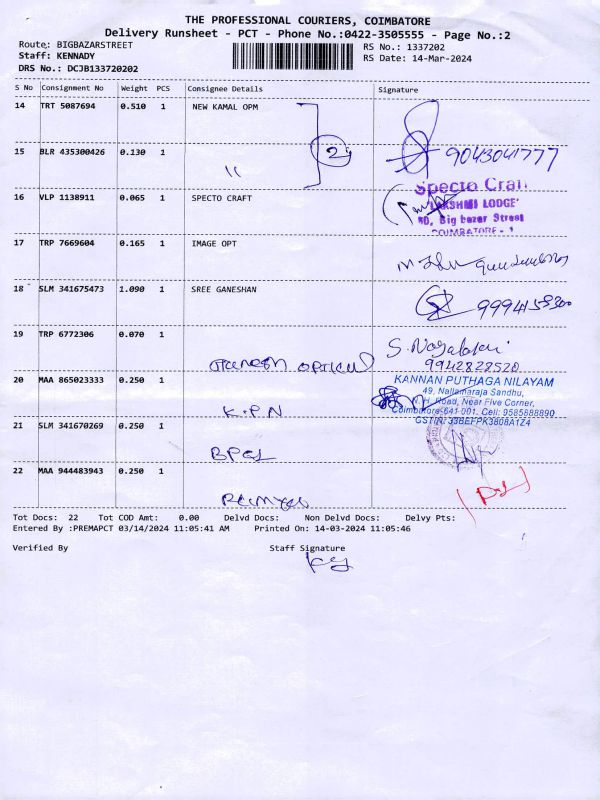 THE PROFESSIONAL COURIERS, COIMBATORE
Delivery Runsheet - PCT - Phone No.:0422-3505555 - Page No.:2
Route: BIGBAZARSTREET RS No.: 1337202
Staff: KENNADY RS Date: 14-Mar-2024
DRS No.: DCJB133720202
S No Consignment No Weight PCS Consignee Details Signature
14 TRT 5087694 0.510 1 NEW KAMAL OPM
2
15 BLR 435300426 0.130 1 9043041777
11
16 VLP 1138911 0.065 1 SPECTO CRAFT
Specto Craft
'LAKSHMI LODGE'
Big bazer Street
COIMBATORE - 1
17 TRP 7669604 0.165 1 IMAGE OPT
18 SLM 341675473 1.090 1 SREE GANESHAN
19 TRP 6772306 0.070 1
9942828520
20 MAA 865023333 0.250 1 K.P.N
KANNAN PUTHAGA NILAYAM
49, Nallamaraja Sandhu,
Road, Near Five Corner,
Coimbatore-641 001. Cell: 9585888890
GSTIN: 33BEFPK3808A1Z4
21 SLM 341670269 0.250 1
22 MAA 944483943 0.250 1
Tot Docs: 22 Tot COD Amt: 0.00 Delvd Docs: Non Delvd Docs: Delvy Pts:
Entered By :PREMAPCT 03/14/2024 11:05:41 AM Printed On: 14-03-2024 11:05:46
Verified By Staff Signature